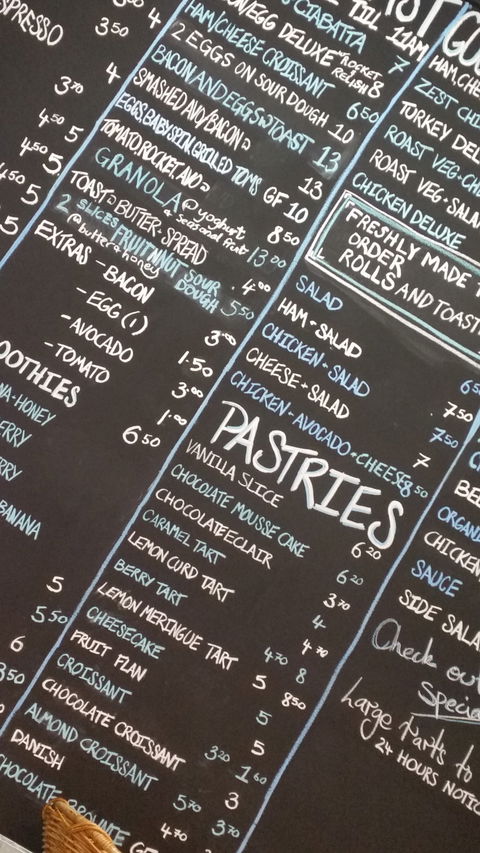 ESPRESSO
3 50
4
3 50
4
3 70
4 50
5
4 50
5
4 50
5
5
TILL 11AM
CIABATTA
BACON/EGG DELUXE ROCKET RELISH 8
HAM/CHEESE CROISSANT 7
2 EGGS ON SOUR DOUGH 6 50
BACON AND EGGS TOAST 10
SMASHED AVY BACON 13
EGGS BABY SPIN, GRILLED TOMS GF 13
TOMATO ROCKET AVO 10
GRANOLA @ yoghurt & seasonal fruit 8 50
TOAST BUTTER + SPREAD 13 00
2 SLICES FRUIT N NUT SOUR DOUGH 4 00
@ butter & honey 5 50
EXTRAS - BACON 3 00
- EGG (1) 1.50
- AVOCADO 3 00
- TOMATO 1 00
6 50
OOTHIES
NA-HONEY
ERRY
RRY
BANANA
5
5 50
6
3 50
HAM, CHE
ZEST CHI
TORKEY DEL
ROAST VEG-CH
ROAST VEG-SALA
CHICKEN DELUXE
FRESHLY MADE T
ORDER
ROLLS AND TOAST
SALAD
HAM + SALAD 6 50
CHICKEN + SALAD 7 50
CHEESE + SALAD 7 50
CHICKEN-AVOCADO+CHEESE 7
8 50
PASTRIES
VANILLA SLICE
CHOCOLATE MOUSSE CAKE 6 20
CHOCOLATE ECLAIR 6 20
CARAMEL TART 3 70
LEMON CURD TART 4
BERRY TART 4 70
LEMON MERINGUE TART 4 70
8
CHEESECAKE 5
FRUIT FLAN 8 50
CROISSANT 5
CHOCOLATE CROISSANT 5
3 20
ALMOND CROISSANT 1 60
DANISH 3
5 70
3 70
CHOCOLATE BROWNIE 4 70
GF
BE
ORGANI
CHICKEN
SAUCE
SIDE SALA
Check out
Specia
Large Tarts to
24 HOURS NOTIC